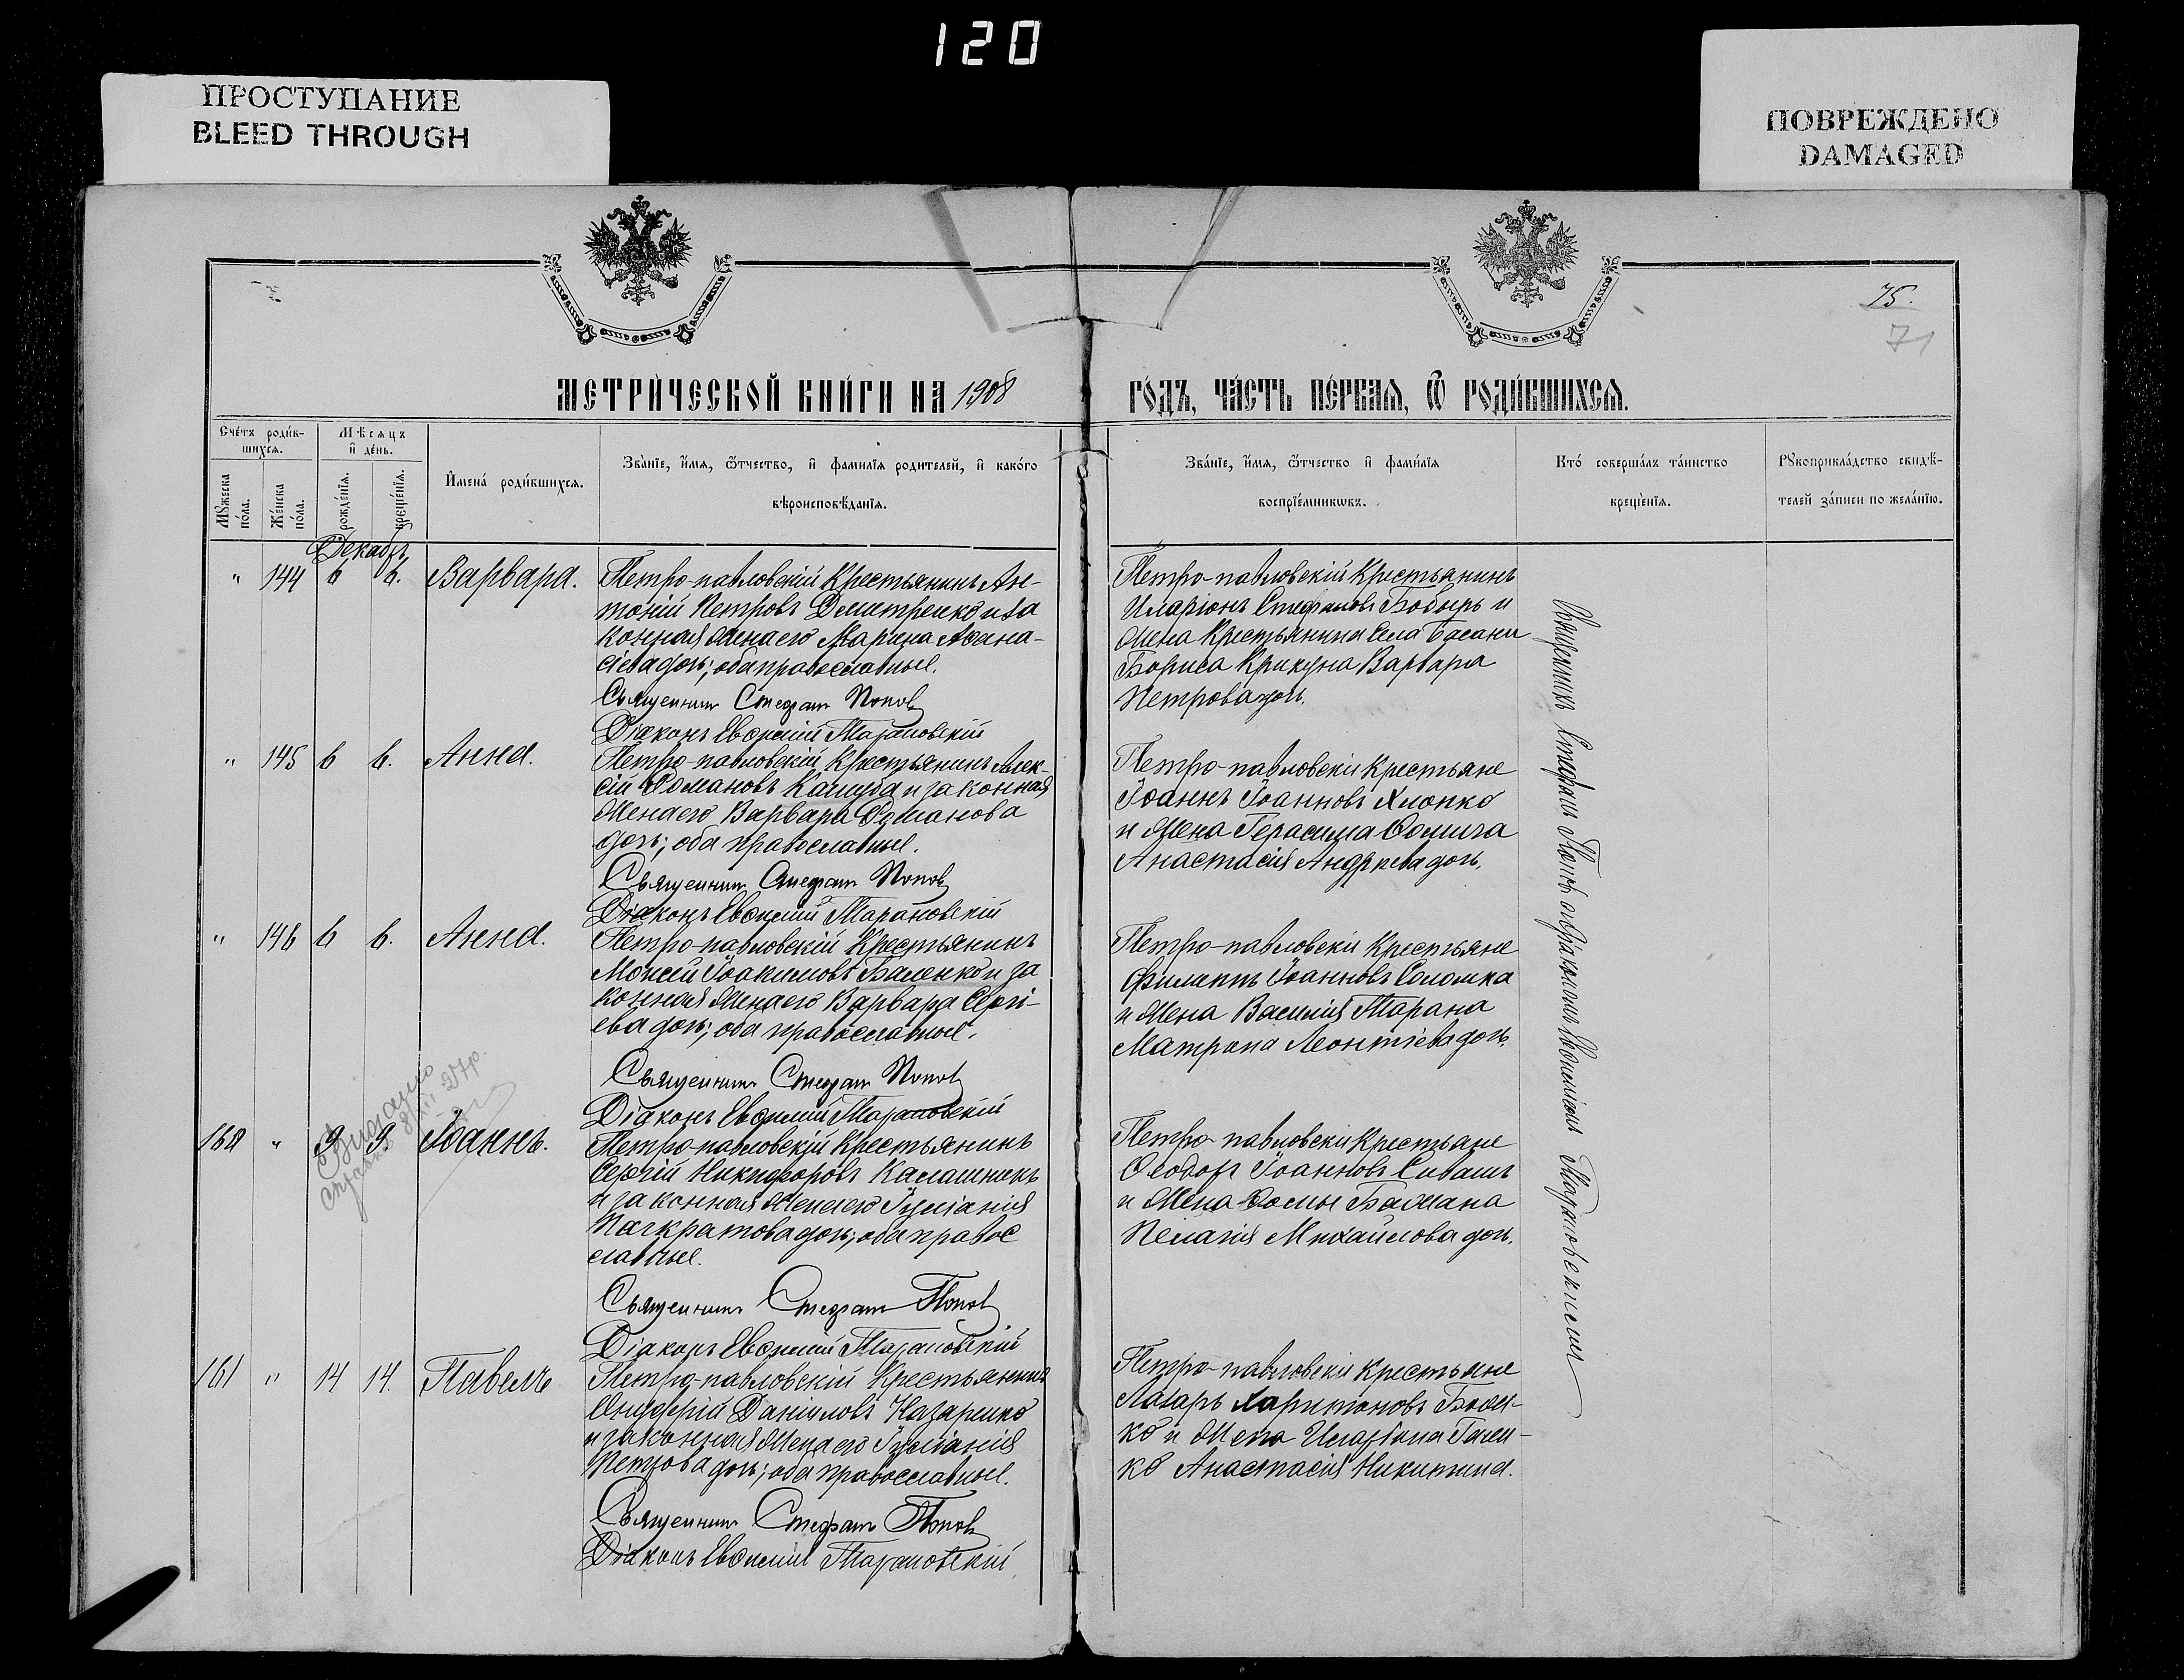 120
ПРОСТУПАНИЕ
BLEED THROUGH
ПОВРЕЖДЕНО
DAMAGED
75.
71
МЕТРИ́ЧЕСКОЙ КНИ́ГИ НА 1908 ГО́ДЪ, ЧА́СТЬ ПЕ́РВАЯ, Ѽ РОДИ́ВШИХСЯ.
Сче́тъ роди́в-
шихся.
Мѣ́сяцъ
и̂ де́нь.
Мꙋжеска
по́ла.
Же́нска
по́ла.
рожде́нїя.
креще́нїя.
И̂мена́ роди́вшихся.
Зва́нїе, и̂мя, ѻ҆́тчество, и̂ фами́лїя родителей, и̂ како́го
вѣроисповѣ́данїя.
Зва́нїе, и̂мя, ѻ҆́тчество и̂ фами́лїя
воспрїе́мникѡвъ.
Кто́ соверша́лъ та́инство
креще́нїя.
Рꙋкоприкла́дство свидѣ́-
телей за́писи по жела́нїю.
Декабрь
" 144 6 6. Варвара.
Петро-павловскій Крестьянинъ Ан-
тоній Петровъ Дмитренко и за
конная жена его Марина Аѳана-
сіева дочь; оба православные.
Священникъ Стефанъ Поповъ
Діаконъ Евѳимій Тарановскій
Петро-павловскій Крестьянинъ
Иларіонъ Стефановъ Бобырь и
жена Крестьянина Села Басани
Бориса Крикуна Варвара
Петрова дочь.
" 145 6 6. Анна.
Петро-павловскій Крестьянинъ Алек-
сій Романовъ Кашуба и законная
жена его Варвара Романова
дочь; оба православные.
Священникъ Стефанъ Поповъ
Діаконъ Евѳимій Тарановскій
Петро-павловскіи Крестьяне
Іоаннъ Іоанновъ Хлопко
и жена Герасима Ѳомича
Анастасія Андреева дочь.
" 146 6 6. Анна.
Петро-павловскій Крестьянинъ
Моисей Іоакимовъ Баленко и за
конная жена его Варвара Сергі-
ева дочь; оба православные.
Священникъ Стефанъ Поповъ
Діаконъ Евѳимій Тарановскій
Петро-павловскіи Крестьяне
Филиппъ Іоанновъ Соломка
и жена Василія Тарана
Матрона Леонтіева дочь.
160 " 9 9. Іоаннъ.
Петро-павловскій Крестьянинъ
Сергій Никифоровъ Калашникъ
и законная жена его Іуліанія
Панкратова дочь; оба правос
славные.
Священникъ Стефанъ Поповъ
Діаконъ Евѳимій Тарановскій
Петро-павловскіи Крестьяне
Ѳеодоръ Іоанновъ Сивашъ
и жена Ѳомы Бажана
Пелагія Михайлова дочь.
161 " 14 14. Павелъ
Петро-павловскій Крестьянинъ
Онуфрій Даніиловъ Назаренко
и законная жена его Іуліанія
Петрова дочь; оба православные.
Священникъ Стефанъ Поповъ
Діаконъ Евѳимій Тарановскій
Петро-павловскіи Крестьяне
Лазарь Харитоновъ
и жена
Анастасія Никитина.
Священникъ Стефанъ Поповъ съ діакономъ Евѳиміемъ Тарановскимъ